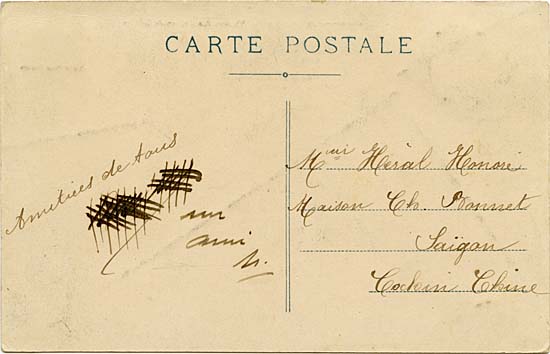 CARTE POSTALE
Amitiées de tous
un
ami
h.
Héral Honoré
Maison Ch. Bonnet
Saigon
Cochin Chine